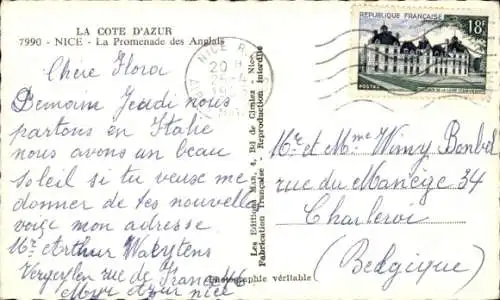 LA COTE D'AZUR
7990 - NICE - La Promenade des Anglais
Chère Flora
Demain Jeudi nous
partons en Italie
nous avons un beau
soleil si tu veux me
donner de tes nouvelle
voiçi mon adresse
Mr Arthur
rue de
Azur nice
Photographie véritable
Les Editions Mar, Bd de Cimiez - Nice
Fabrication Française - Reproduction Interdite
NICE
20 H
REPUBLIQUE FRANÇAISE
18F
POSTES
Mr et Mme Wimy
rue du Manège 34
Charleroi
(Belgique)